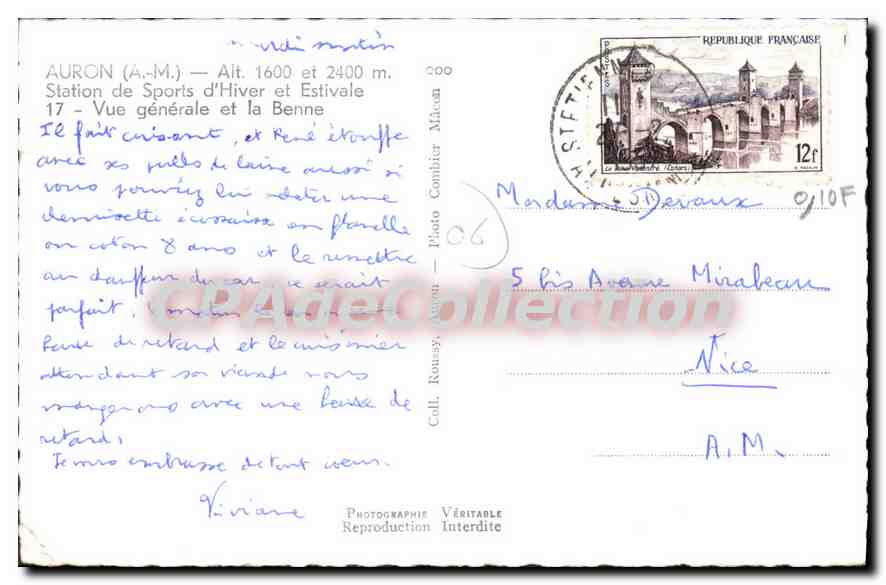 mardi matin
AURON (A.-M.) — Alt. 1600 et 2400 m.
Station de Sports d'Hiver et Estivale
17 - Vue générale et la Benne
Il fait cuisant, et René étouffe
avec ses pulls de laine aussi si
vous pouviez lui acheter une
chemisette écossaise en flanelle
ou coton 8 ans et le remettre
au chauffeur du car ce serait
parfait.
heure de retard et le cuisinier
attendant sa viande nous
mangerons avec une heure de
retard.
Je vous embrasse de tout cœur.
Viviane
Coll. Roussy, Auron — Photo Combier Mâcon
200
06
REPUBLIQUE FRANÇAISE
12f
0,10F
Madame Devaux
5 bis Avenue Mirabeau
Nice
A.M.
PHOTOGRAPHIE VÉRITABLE
Reproduction Interdite
CPAdeCollection